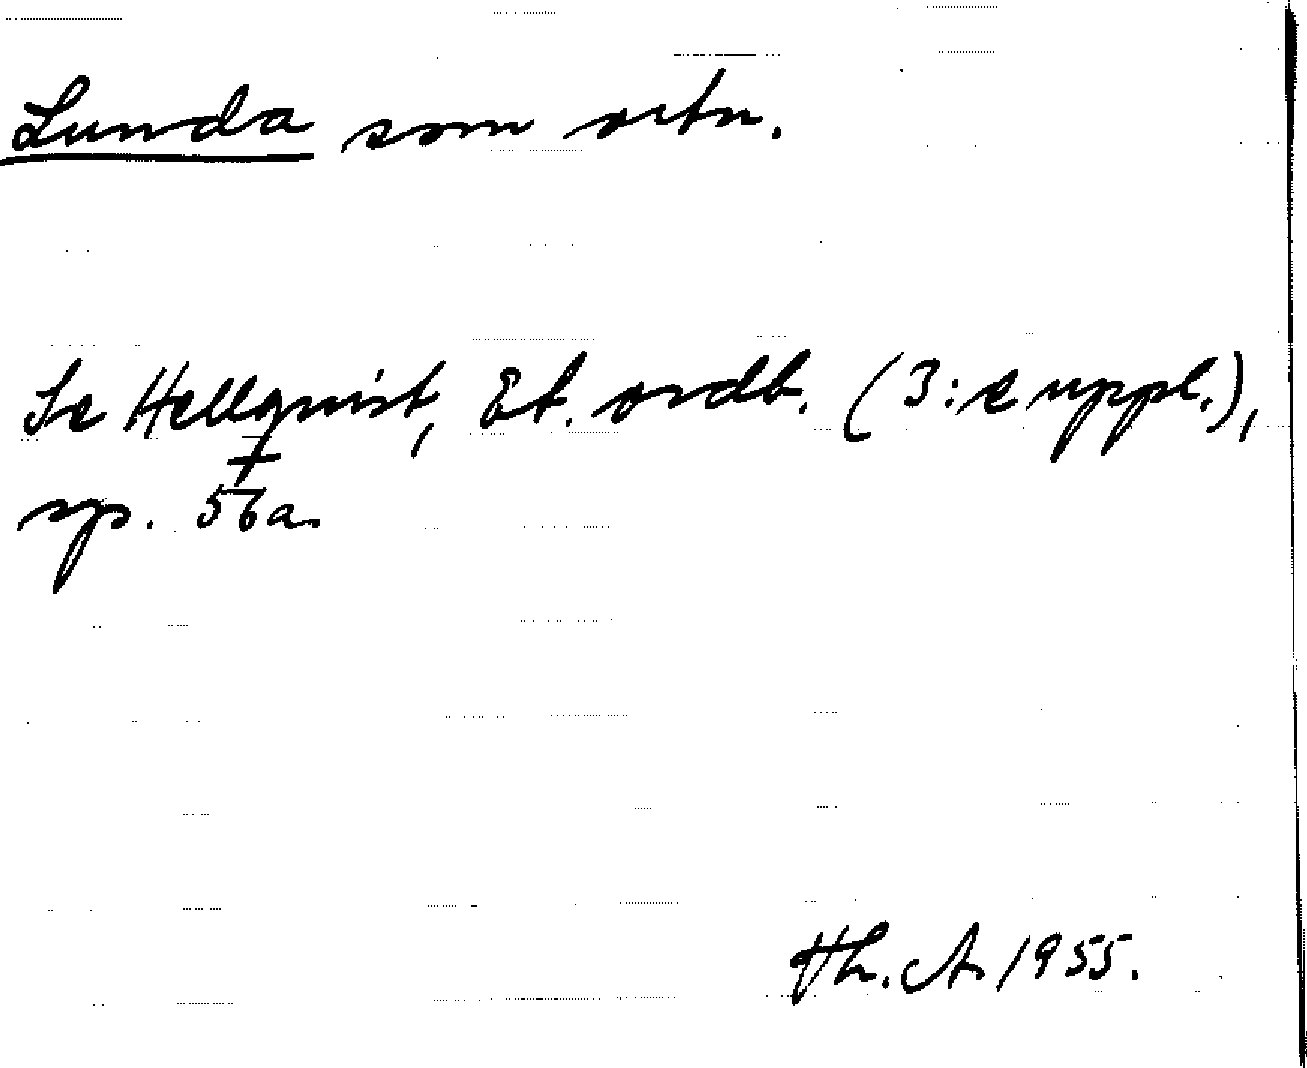 Lunda som ortn.
Se Hellquist, Et. ordb. (3:e uppl.),
sp. 56a.
Hh. A. 1955.